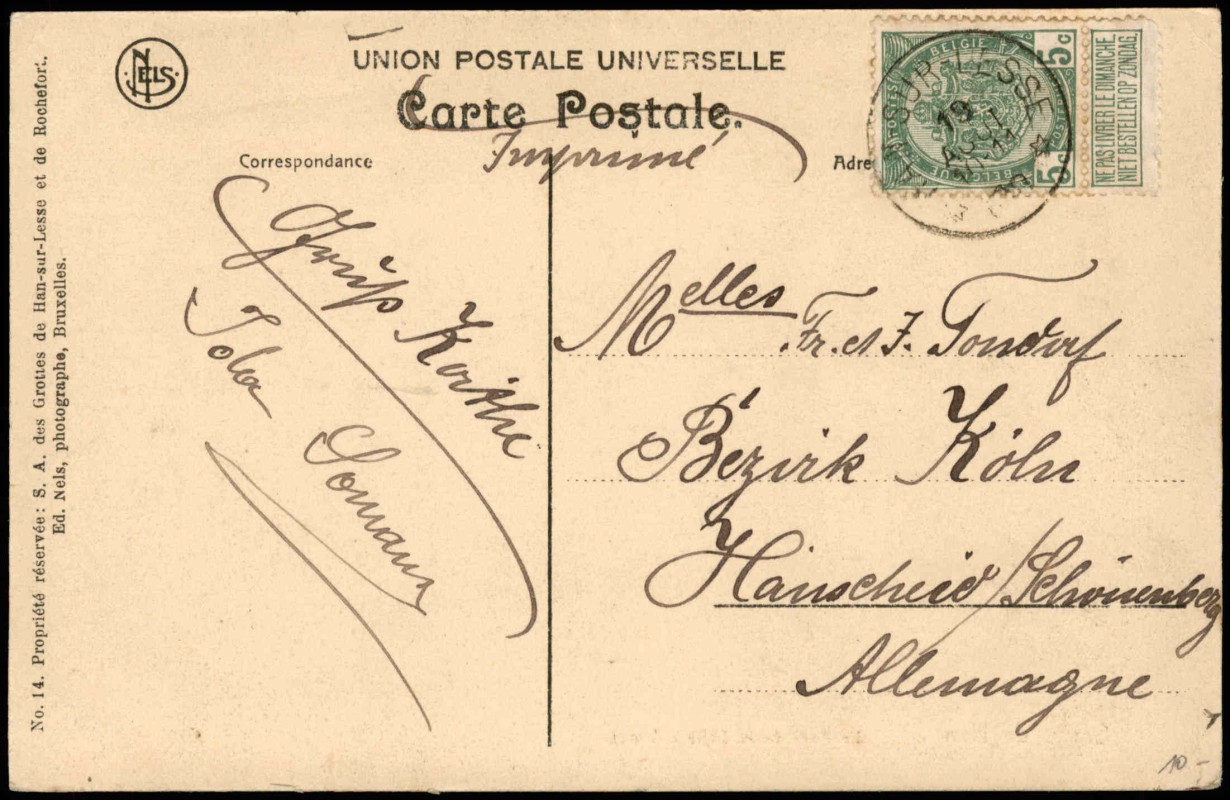 NELS
UNION POSTALE UNIVERSELLE
Carte Postale.
Imprimé
Correspondance
Adre
5c 5c
BELGIE
POSTES
BELGIQUE
NE PAS LIVRER LE DIMANCHE
NIET BESTELLEN OP ZONDAG
SUR-LESSE
19
AOUT
Gruß Käthe
Melles Fr. et J. Tondorf
Bézirk Köln
Hänscheid/Schönenberg
Allemagne
No. 14. Propriété réservée: S. A. des Grottes de Han-sur-Lesse et de Rochefort.
Ed. Nels, photographe, Bruxelles.
10 -